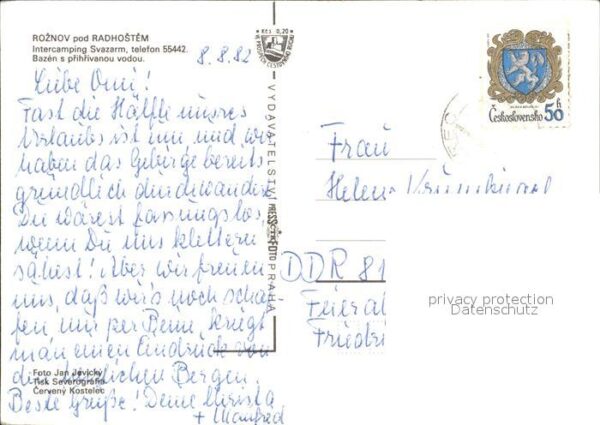 ROŽNOV pod RADHOŠTĚM
Intercamping Svazarm, telefon 55442.
Bazén s přihřívanou vodou.
Kčs 0,20
8.8.82
Liebe Omi!
Fast die Hälfte unsres
Urlaubs ist um und wir
haben das Gebirge bereits
gründlich durchwandert.
Du wärest fassungslos,
wenn Du uns klettern
sähest! Aber wir freuen
uns, daß wir's noch schaf-
fen, nur per Beine kriegt
man einen Eindruck von
den herrlichen Bergen.
Beste Grüße! Deine Christa
+ Manfred
Foto Jan Jevický
Tisk Severografia
Červený Kostelec
VYDAVATELSTVÍ PRESSFOTO PRAHA
Československo 50 h
Frau
Helene
DDR 81
Feierab
Friedri
privacy protection
Datenschutz